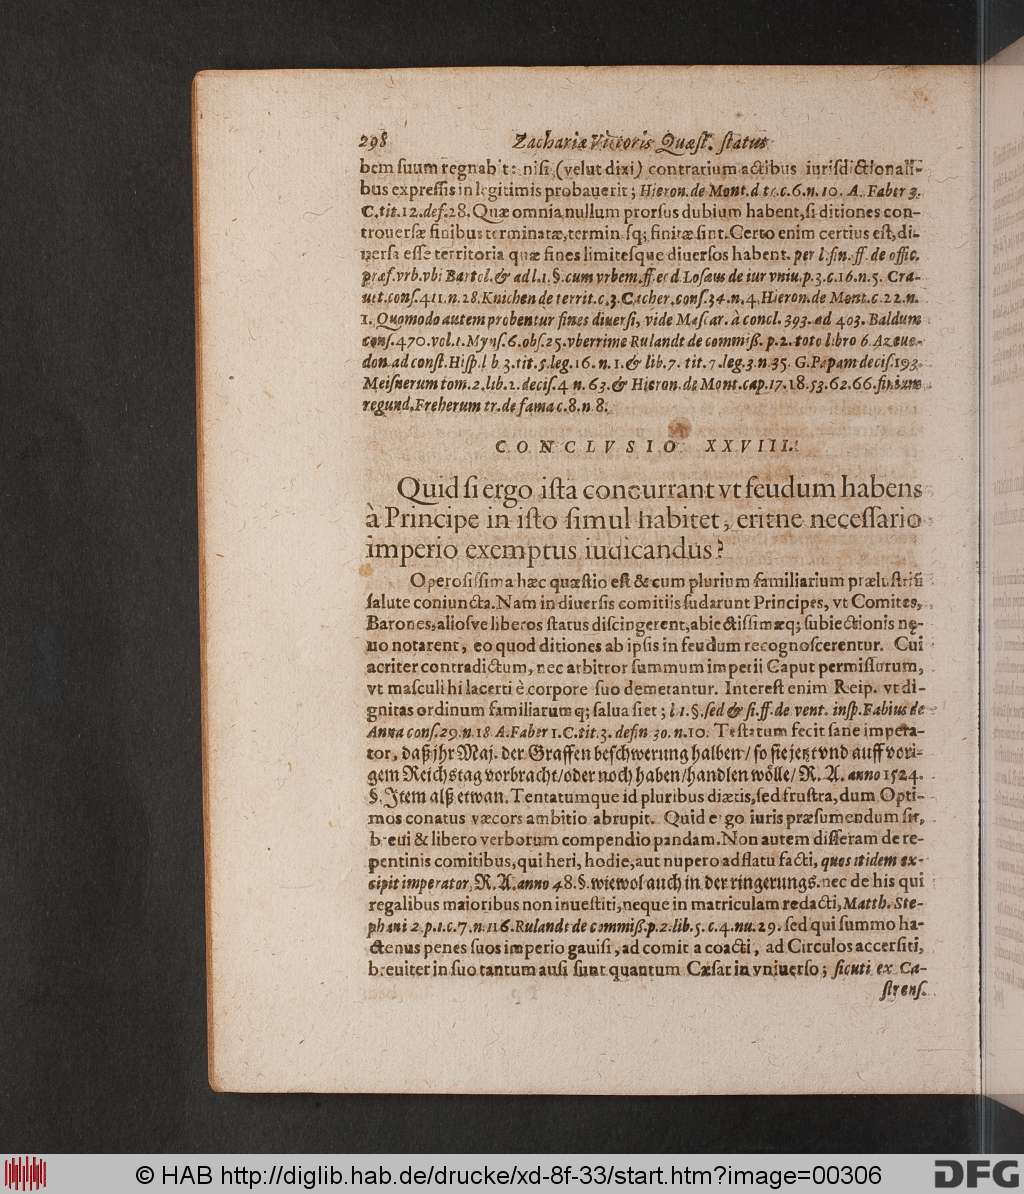 298 Zachariæ Victoris Quæst. status
bem suum regnabit: nisi (velut dixi) contrarium actibus iurisdictionali-
bus expressis in legitimis probauerit; Hieron. de Mont. d. tr. c. 6. n. 10. A. Faber 3.
C. tit. 12. def. 28. Quæ omnia nullum prorsus dubium habent, si ditiones con-
trouersæ finibus terminatæ, terminisq; finitæ sint. Certo enim certius est, di-
uersa esse territoria quæ fines limitesque diuersos habent. per l. fin. ff. de offic.
præf. vrb. vbi Bartol. & ad l. 1. §. cum vrbem. ff. eod Losæus de iur vniu. p. 3. c. 16. n. 5. Cra-
uet. cons. 411. n. 28. Knichen de territ. c. 3. Cacher. cons. 34. n. 4. Hieron. de Mont. c. 22. n.
1. Quomodo autem probentur fines diuersi, vide Mascar. à concl. 393. ad 403. Baldum
cons. 470. vol. 1. Myns. 6. obs. 25. vberrime Rulandt de commiß. p. 2. toto libro 6. Azeue-
don. ad const. Hisp. lib. 3. tit. 5. leg. 16. n. 1. & lib. 7. tit. 7. leg. 3. n. 35. G. Papam decis. 193.
Meisnerum tom. 2. lib. 2. decis. 4 n. 63. & Hieron. de Mont. cap. 17. 18. 53. 62. 66. finium
regund. Freherum tr. de fama c. 8. n 8.
CONCLVSIO XXVIII.
Quid si ergo ista concurrant vt feudum habens
à Principe in isto simul habitet, eritne necessario
imperio exemptus iudicandus?
Operosissima hæc quæstio est & cum plurium familiarium prælustrisi
salute coniuncta. Nam in diuersis comitiis sudarunt Principes, vt Comites,
Barones, aliosve liberos status discingerent, abiectissimæq; subiectionis nę-
uo notarent, eo quod ditiones ab ipsis in feudum recognoscerentur. Cui
acriter contradictum, nec arbitror summum imperii Caput permissurum,
vt masculi hi lacerti è corpore suo demetantur. Interest enim Reip. vt di-
gnitas ordinum familiarumq; salua siet; l 1. §. sed & si. ff. de vent. insp. Fabius de
Anna cons. 29. n. 18 A. Faber 1. C. tit. 3. defin 30. n. 10. Testatum fecit sane impera-
tor, daß jhr Maj. der Graffen beschwerung halben/ so sie jetzt vnd auff vori-
gem Reichstag vorbracht/ oder noch haben/ handlen wölle/ R. A. anno 1524.
§. Item alß etwan. Tentatumque id pluribus diætis, sed frustra, dum Opti-
mos conatus væcors ambitio abrupit. Quid ergo iuris præsumendum sit,
breui & libero verborum compendio pandam. Non autem disseram de re-
pentinis comitibus, qui heri, hodie, aut nupero adflatu facti, quos itidem ex-
cipit imperator, R. A. anno 48. §. wiewol auch in der ringerungs. nec de his qui
regalibus maioribus non inuestiti, neque in matriculam redacti, Matth. Ste-
phani 2. p. 1. c. 7. n. 116. Rulandt de commiß. p. 2. lib. 5. c. 4. nu. 29. sed qui summo ha-
ctenus penes suos imperio gauisi, ad comitia coacti, ad Circulos accersiti,
breuiter in suo tantum ausi sunt quantum Cæsar in vniuerso; sicuti ex Ca-
strens.
© HAB http://diglib.hab.de/drucke/xd-8f-33/start.htm?image=00306
DFG